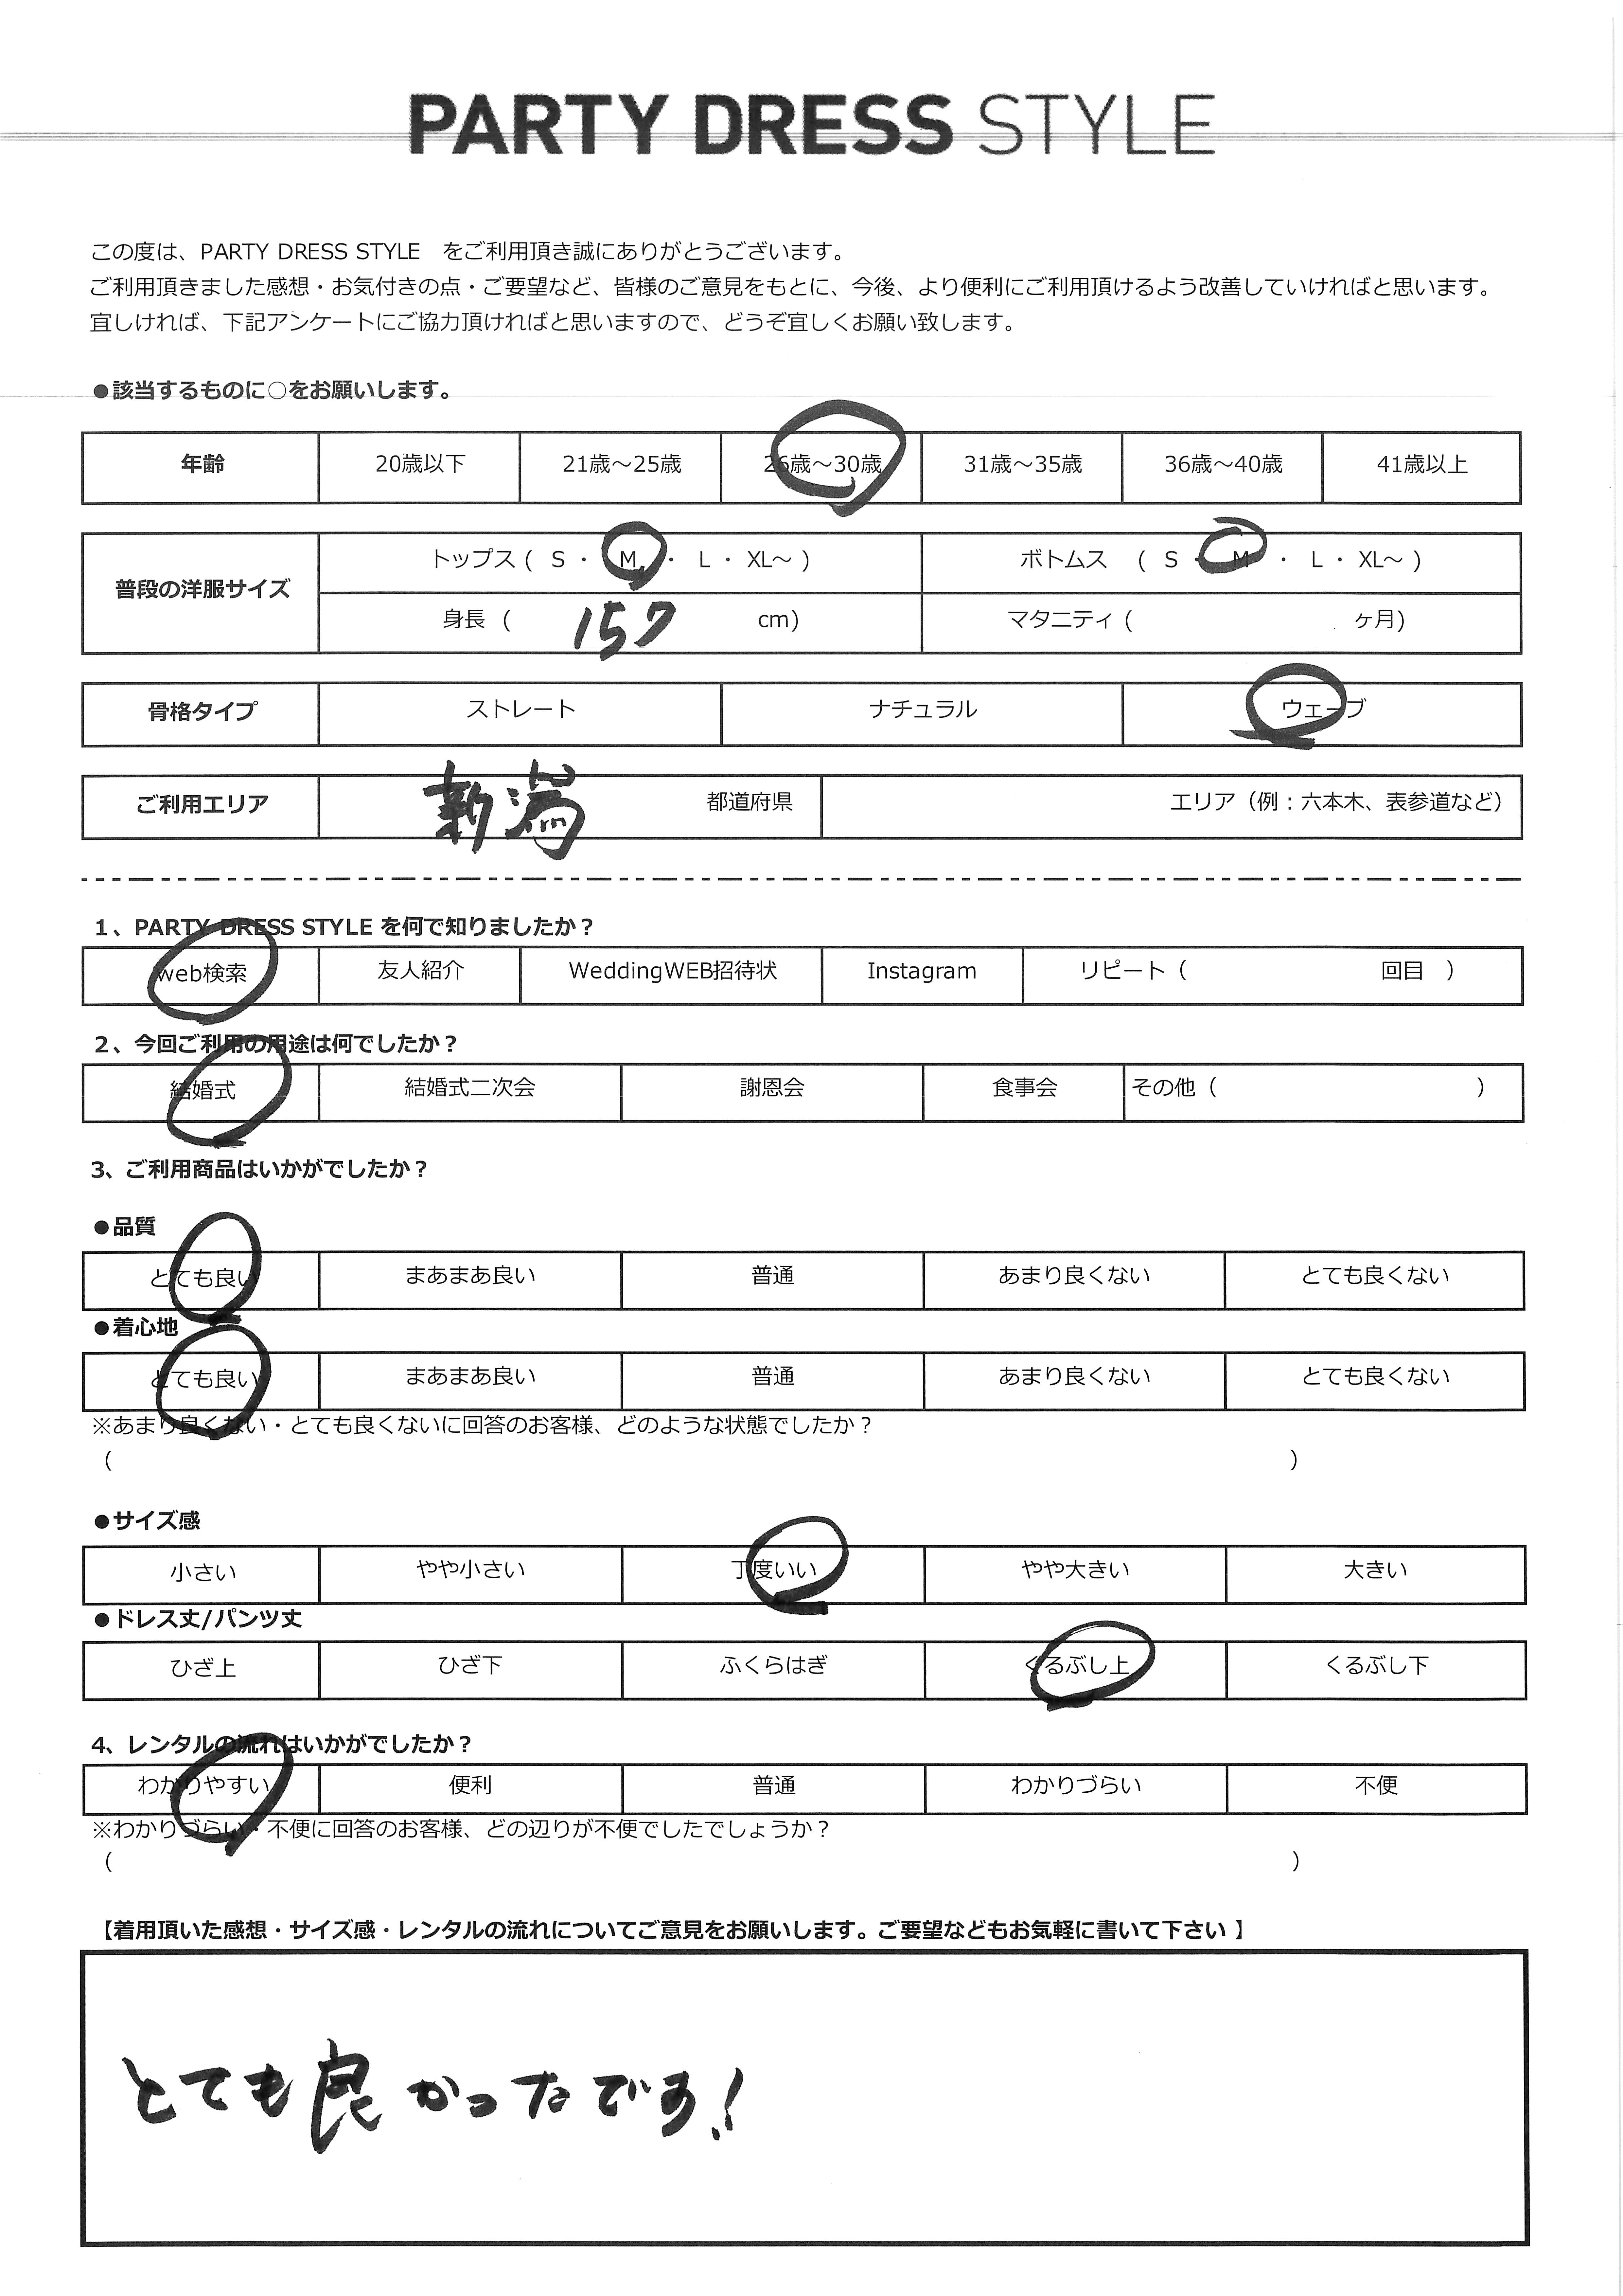 PARTY DRESS STYLE
この度は、PARTY DRESS STYLE　をご利用頂き誠にありがとうございます。
ご利用頂きました感想・お気付きの点・ご要望など、皆様のご意見をもとに、今後、より便利にご利用頂けるよう改善していければと思います。
宜しければ、下記アンケートにご協力頂ければと思いますので、どうぞ宜しくお願い致します。
●該当するものに○をお願いします。
年齢 20歳以下 21歳～25歳 26歳～30歳 31歳～35歳 36歳～40歳 41歳以上
普段の洋服サイズ
トップス ( S ・ M ・ L ・ XL～ ) ボトムス ( S ・ M ・ L ・ XL～ )
身長 ( 157 cm) マタニティ ( ヶ月)
骨格タイプ ストレート ナチュラル ウェーブ
ご利用エリア 新潟 都道府県 エリア（例：六本木、表参道など）
1、PARTY DRESS STYLE を何で知りましたか？
web検索 友人紹介 WeddingWEB招待状 Instagram リピート（ 回目 ）
2、今回ご利用の用途は何でしたか？
結婚式 結婚式二次会 謝恩会 食事会 その他（ ）
3、ご利用商品はいかがでしたか？
●品質
とても良い まあまあ良い 普通 あまり良くない とても良くない
●着心地
とても良い まあまあ良い 普通 あまり良くない とても良くない
※あまり良くない・とても良くないに回答のお客様、どのような状態でしたか？
（ ）
●サイズ感
小さい やや小さい 丁度いい やや大きい 大きい
●ドレス丈/パンツ丈
ひざ上 ひざ下 ふくらはぎ くるぶし上 くるぶし下
4、レンタルの流れはいかがでしたか？
わかりやすい 便利 普通 わかりづらい 不便
※わかりづらい・不便に回答のお客様、どの辺りが不便でしたでしょうか？
（ ）
【着用頂いた感想・サイズ感・レンタルの流れについてご意見をお願いします。ご要望などもお気軽に書いて下さい 】
とても良かったです！